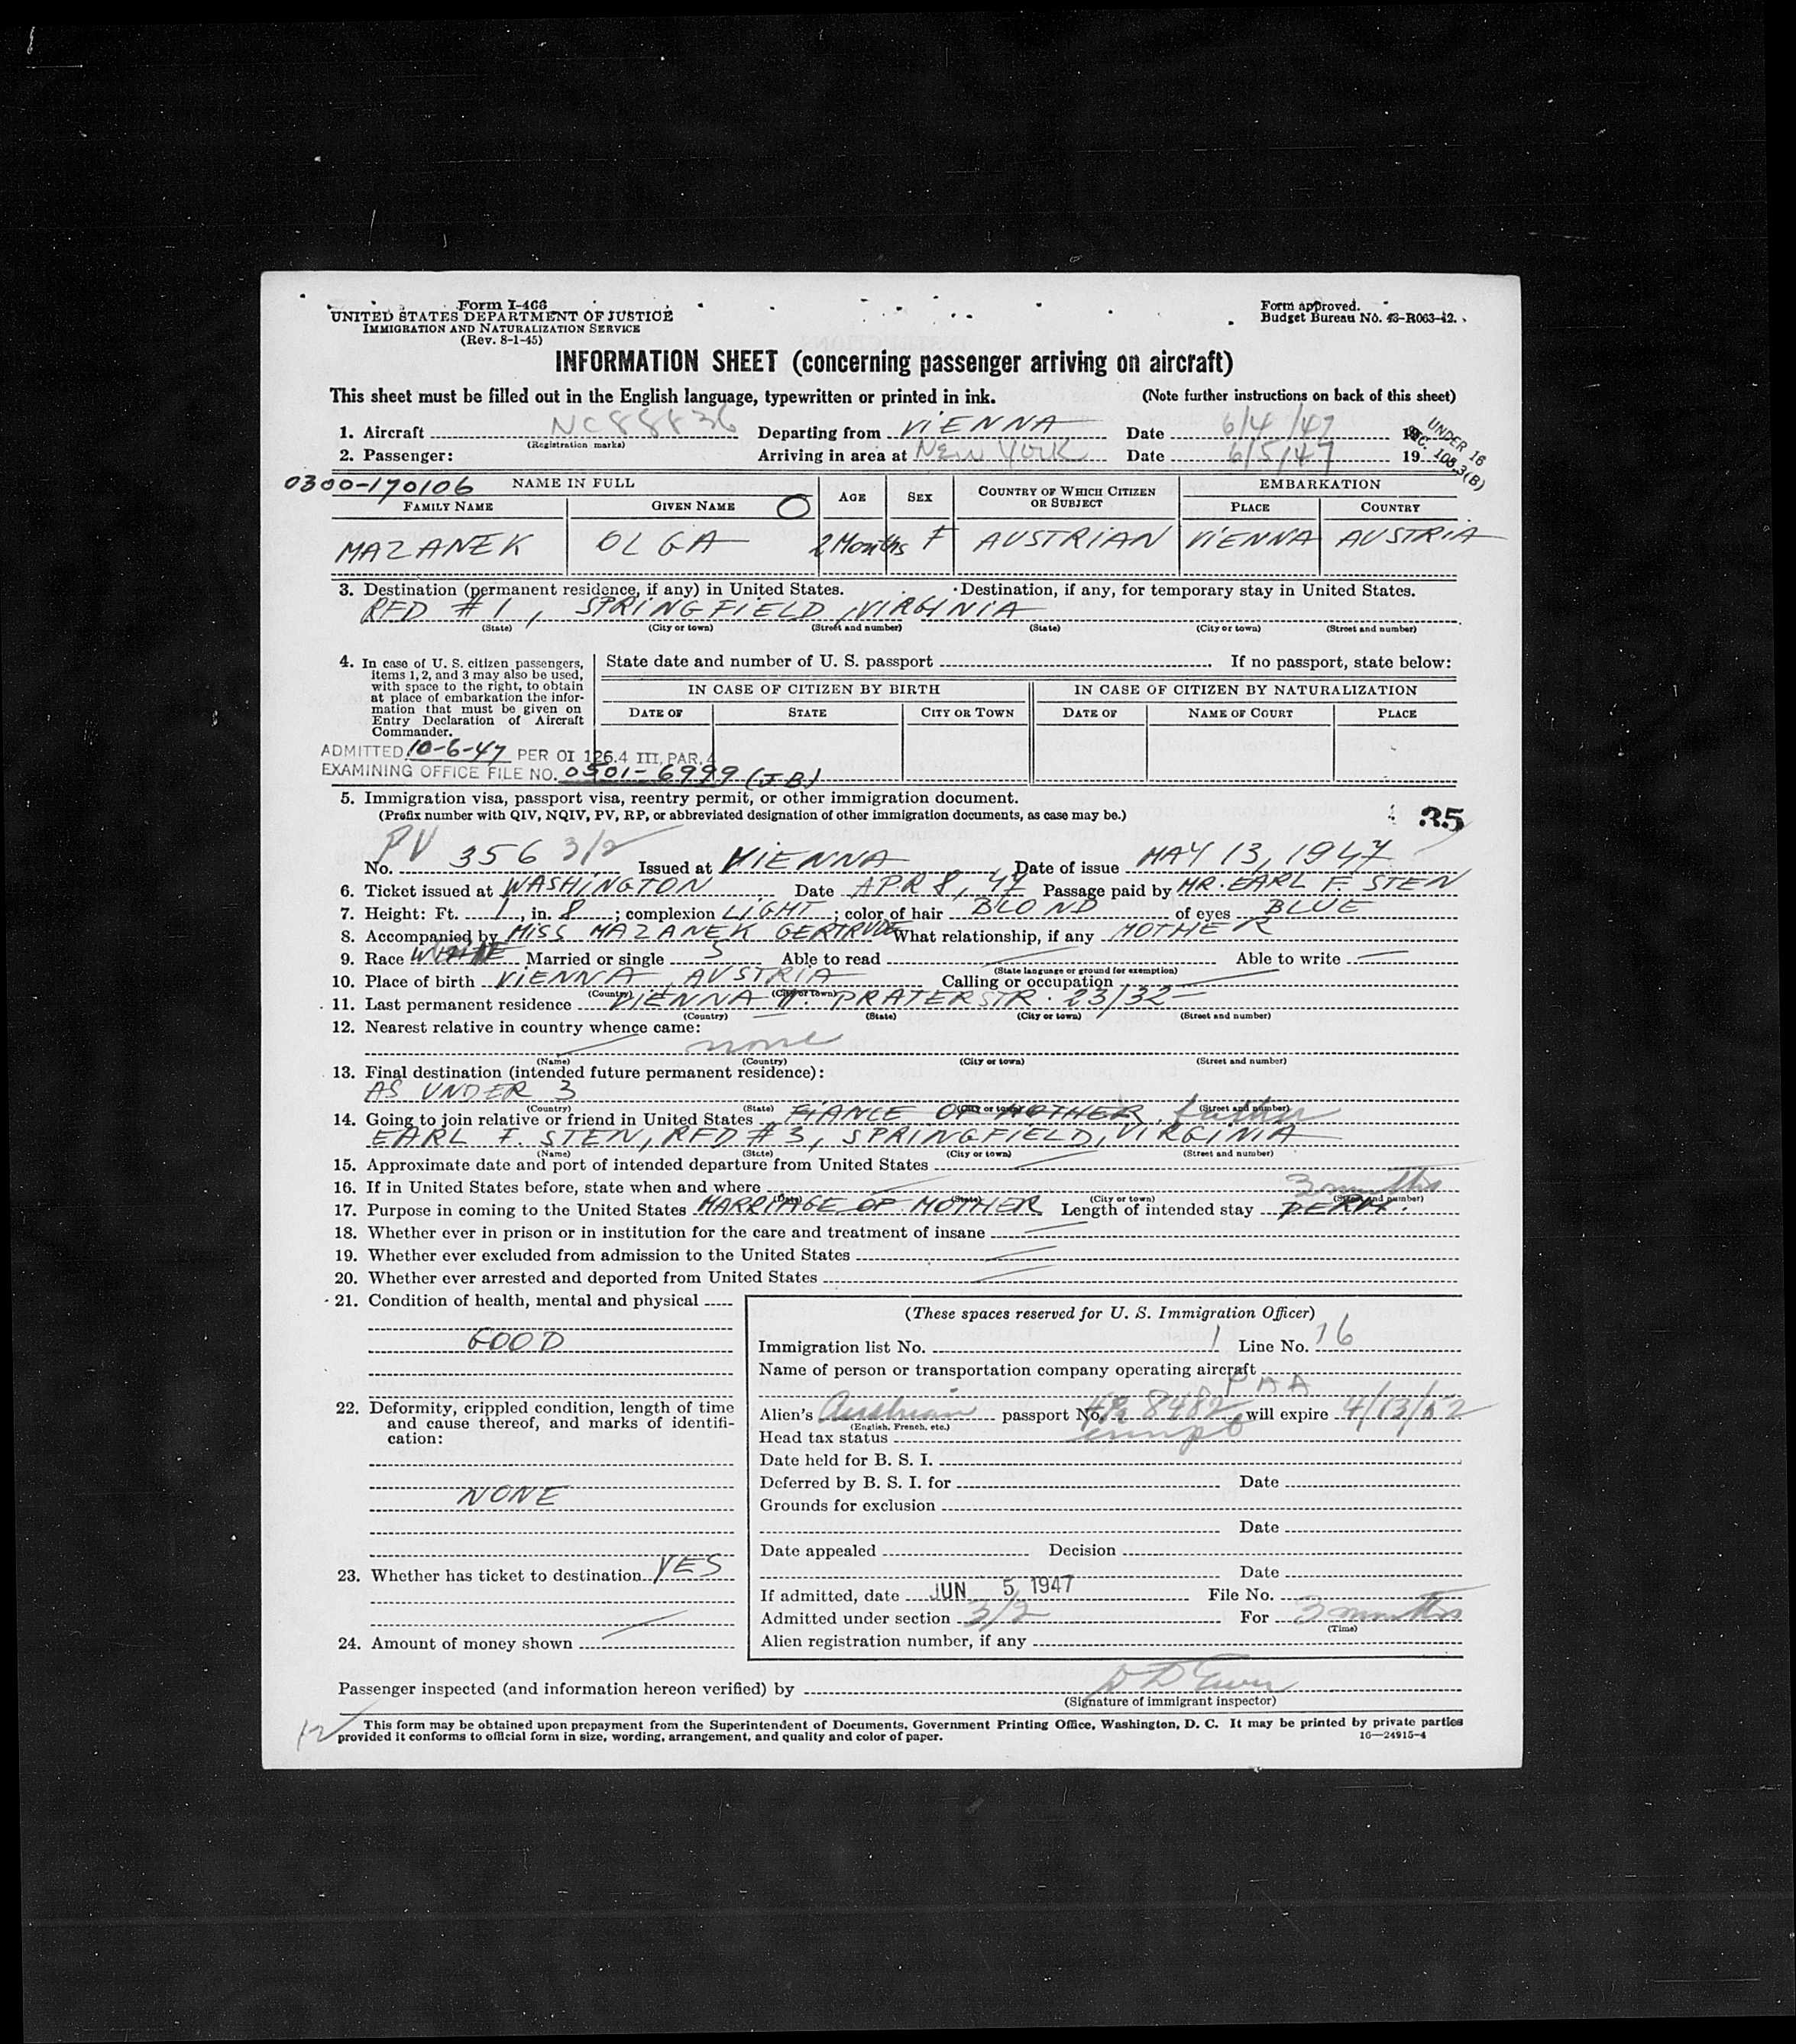 Form I-466
UNITED STATES DEPARTMENT OF JUSTICE
IMMIGRATION AND NATURALIZATION SERVICE
(Rev. 8-1-45)
Form approved.
Budget Bureau No. 43-R063-42.
INFORMATION SHEET (concerning passenger arriving on aircraft)
This sheet must be filled out in the English language, typewritten or printed in ink. (Note further instructions on back of this sheet)
1. Aircraft NC88836 Departing from VIENNA Date 6/4/47 19
(Registration marks)
2. Passenger: Arriving in area at NEW YORK Date 6/5/47 19
UNDER 16
SEC. 108.3(B)
0300-170106 NAME IN FULL AGE SEX COUNTRY OF WHICH CITIZEN OR SUBJECT EMBARKATION
FAMILY NAME GIVEN NAME O PLACE COUNTRY
MAZANEK OLGA 2 Months F AUSTRIAN VIENNA AUSTRIA
3. Destination (permanent residence, if any) in United States. Destination, if any, for temporary stay in United States.
RFD #1, SPRINGFIELD, VIRGINIA
(State) (City or town) (Street and number) (State) (City or town) (Street and number)
4. In case of U. S. citizen passengers, items 1, 2, and 3 may also be used, with space to the right, to obtain at place of embarkation the information that must be given on Entry Declaration of Aircraft Commander.
State date and number of U. S. passport If no passport, state below:
IN CASE OF CITIZEN BY BIRTH IN CASE OF CITIZEN BY NATURALIZATION
DATE OF STATE CITY OR TOWN DATE OF NAME OF COURT PLACE
ADMITTED 10-6-47 PER OI 126.4 III, PAR. 4
EXAMINING OFFICE FILE NO. 0501-6999 (J.B)
5. Immigration visa, passport visa, reentry permit, or other immigration document.
(Prefix number with QIV, NQIV, PV, RP, or abbreviated designation of other immigration documents, as case may be.)
35
No. PV 356 3/2 Issued at VIENNA Date of issue MAY 13, 1947
6. Ticket issued at WASHINGTON Date APR 8, 47 Passage paid by MR. EARL F. STEN
7. Height: Ft. 1, in. 8; complexion LIGHT; color of hair BLOND of eyes BLUE
8. Accompanied by MISS MAZANEK GERTRUDE What relationship, if any MOTHER
9. Race WHITE Married or single S Able to read Able to write
(State language or ground for exemption)
10. Place of birth VIENNA, AUSTRIA Calling or occupation
(Country) (City or town)
11. Last permanent residence VIENNA II. PRATERSTR. 23/32
(Country) (State) (City or town) (Street and number)
12. Nearest relative in country whence came:
none
(Name) (Country) (City or town) (Street and number)
13. Final destination (intended future permanent residence):
AS UNDER 3
(Country) (State) (City or town) (Street and number)
14. Going to join relative or friend in United States FIANCE OF MOTHER, father
EARL F. STEN, RFD #3, SPRINGFIELD, VIRGINIA
(Name) (State) (City or town) (Street and number)
15. Approximate date and port of intended departure from United States
16. If in United States before, state when and where
(Date) (State) (City or town) (Street and number)
3 months
17. Purpose in coming to the United States MARRIAGE OF MOTHER Length of intended stay PERM.
18. Whether ever in prison or in institution for the care and treatment of insane
19. Whether ever excluded from admission to the United States
20. Whether ever arrested and deported from United States
21. Condition of health, mental and physical
GOOD
22. Deformity, crippled condition, length of time and cause thereof, and marks of identification:
NONE
23. Whether has ticket to destination YES
24. Amount of money shown
(These spaces reserved for U. S. Immigration Officer)
Immigration list No. 1 Line No. 16
Name of person or transportation company operating aircraft
PAA
Alien's Austrian passport No. 8482 will expire 4/13/52
(English, French, etc.)
Head tax status exempt
Date held for B. S. I.
Deferred by B. S. I. for Date
Grounds for exclusion
Date
Date appealed Decision
Date
If admitted, date JUN 5 1947 File No.
Admitted under section 3/2 For 3 months
(Time)
Alien registration number, if any
Passenger inspected (and information hereon verified) by
(Signature of immigrant inspector)
12
This form may be obtained upon prepayment from the Superintendent of Documents, Government Printing Office, Washington, D. C. It may be printed by private parties
provided it conforms to official form in size, wording, arrangement, and quality and color of paper. 16—24915-4